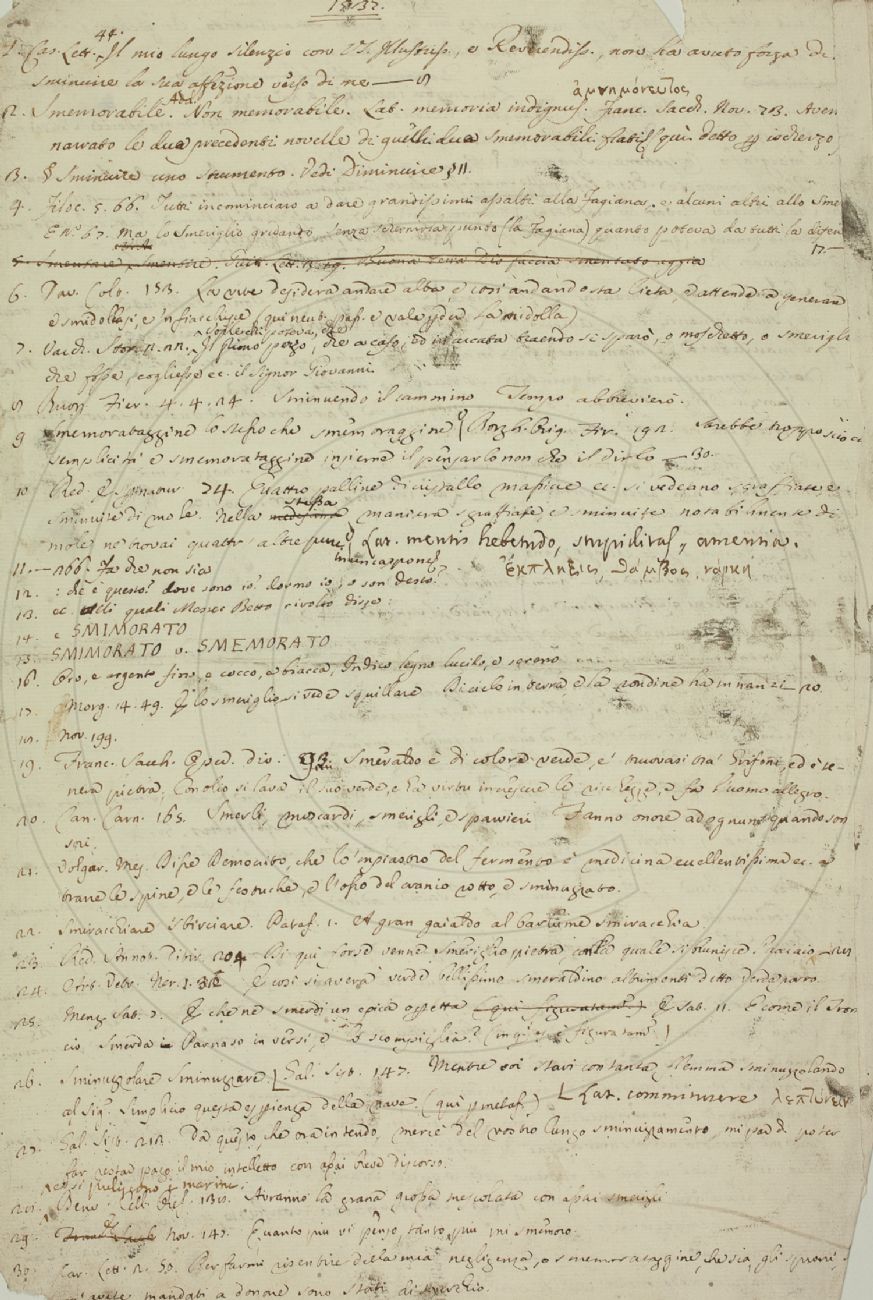 1. Car. Lett. 44. Il mio lungo silenzio con V. S. Illustriss., e Reverendiss., non ha avuto forza di
sminuire la sua affezione verso di me — 8
ἀμνημόνευτος
2. Smemorabile. Add. Non memorabile. Lat. memoria indignus. Franc. Sacch. Nov. 73. Aven
narrato le due precedenti novelle di quelli due smemorabili qui detto p ischerzo
3. § Sminuire uno strumento. Vedi Diminuire § II.
4. Filoc. 5. 66. Tutti incominciaro a dare grandissimi assalti alla fagiana, e alcuni altri allo Sme
E n.° 67. Ma lo smeriglio gridando senza schermirsi punto (la fagiana) quanto poteva da tutti la difen
17.—
5. Smentare, Smentire. Guitt. Lett. Buona terra Dio faccia smentato aggia
6. Dav. Colt. 153. La vite desidera andare alta, e così andando sta lieta, e attende a generare
e smidollasi, e 'nfiacchisce (qui neut. pass. e vale perder la midolla)
coglierlo poteva, che
7. Varch. Stor. Il primo pezzo, che a caso, ed in arcata traendo si sparò, o moschetto, o smerigli
che fosse, cogliesse ec. il Signor Giovanni
8. Buon. Fier. 4. 4. 24. Sminuendo il cammino Tempo abbrevierò.
9. Smemorataggine lo stesso che smemoraggine Borgh. Orig. Fir. 192. Sarebbe troppo sciocca
semplicità e smemorataggine insieme il pensarlo non che il dirlo — 30.
10. Red. Esp. natur. 74. Quattro palline di cristallo massicce ec. si vedeano sgraffiate, e
stessa
sminuite di mole. Nella medesima maniera sgraffiate, e sminuite notabilmente di
mole ne trovai quattro altre pure Lat. mentis hebetudo, stupiditas, amentia.
11. — 166. Fa che non sia
ἔκπληξις, θάμβος, νάρκη
12. : che è questo? dove sono io? dormo io, o son desto?
13. ec. Alli quali Messer Betto rivolto disse
14. e SMIMORATO
15. SMIMORATO v. SMEMORATO
16. Oro, e argento fino, e cocco, e biacca, Indico legno lucido, e sereno
17. Morg. 14. 49. E lo smeriglio si vede squillare Di cielo in terra, e la rondine ha innanzi — 20.
18. Nov. 199.
19. Franc. Sacch. Oped. div. 93. Smeraldo è di colore verde, e' truovasi tra' Grifoni, ed è te-
nera pietra; con olio si lava il suo verde, e ha virtù in crescere le ricchezze, e fa l'uomo allegro.
20. Can. Carn. 165. Smerli, moscardi, smerigli, e sparvieri Fanno onore ad ognun, quando son
sori.
21. Volgar. Mes. Disse Democrito, che lo 'mpiastro del fermento è medicina eccellentissima ec. a
trarre le spine, e le festuche, e l'osso del cranio rotto, e sminuzzato.
22. Smiracchiare Sbirciare. Pataf. 1. A gran gaialdo al barlume smiracchia
23. Red. Annot. Ditir. 204 Di qui forse venne Smeriglio pietra colla quale si brunisce l'acciaio — 24
24. Art. Vetr. Ner. 1. 31 E così si averà verde bellissimo smeraldino altrimenti detto verdeporro
25. Menz. Sat. 2. E che ne smerdi un epica ossetta (qui figuratam.) E Sat. 11. E come il Tron
cio Smerda in Parnaso in versi, e lo scompiglia? (in q. es. è figuratam.)
26. Sminuzzolare Sminuzzare. Gal. Sist. 147. Mentre voi stavi con tanta flemma sminuzzolando
al Sig. Simplicio questa esperienza della nave (qui p metaf.) Lat. comminuere λεπτύνειν
27. Gal. Sist. 213. Da questo, che ora intendo, mercè del vostro lungo sminuzzamento, mi par di poter
far restar pago il mio intelletto con assai breve discorso.
e si puliscono i marmi;
28. Benv. Cell. Oref. 130. Avranno la grana grossa mescolata con assai smerigli
29. Nov. 147. Quanto più vi penso, tanto più mi smemoro.
30. Car. Lett. 2. 50. Per farmi risentire della mia negligenza, o smemorataggine, che sia, gli sproni,
avete mandati a donare sono stati di soverchio.